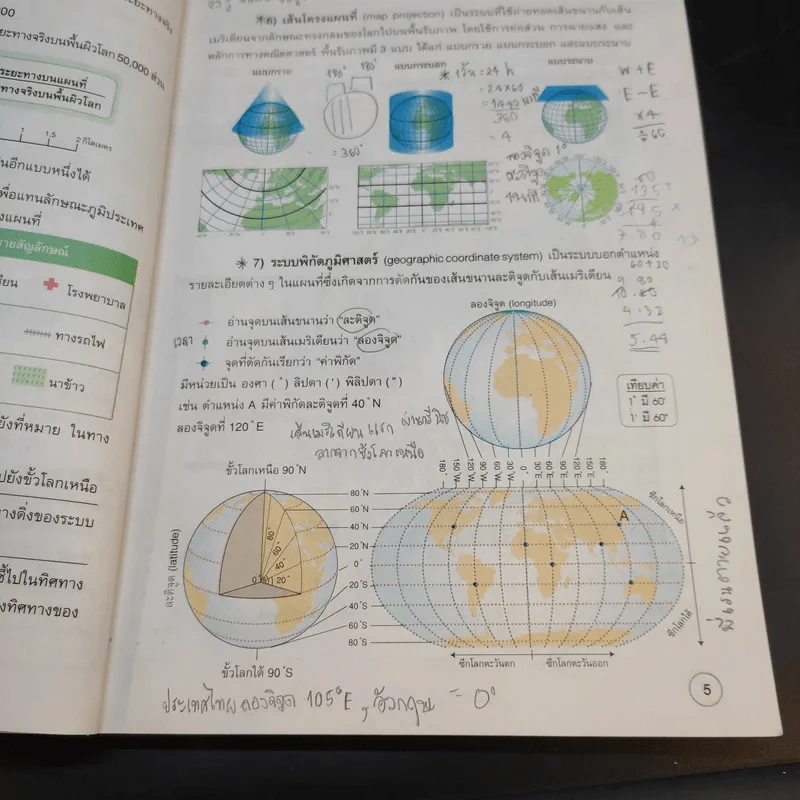 000
ะยะทางจริงบนพื้นผิวโลก 50,000 ส่วน
ระยะทางบนแผนที่
ทางจริงบนพื้นผิวโลก
1 1.5 2 กิโลเมตร
นอีกแบบหนึ่งได้
พื่อแทนลักษณะภูมิประเทศ
งแผนที่
ายสัญลักษณ์
เรียน โรงพยาบาล
ทางรถไฟ
นาข้าว
ยังที่หมาย ในทาง
ปยังขั้วโลกเหนือ
างดิ่งของระบบ
ชี้ไปในทิศทาง
งทิศทางของ
*6) เส้นโครงแผนที่ (map projection) เป็นระบบที่ใช้ถ่ายทอดเส้นขนานกับเส้น
เมริเดียนจากลักษณะทรงกลมของโลกไปบนพื้นรับภาพ โดยใช้การย่อส่วน การฉายแสง และ
หลักการทางคณิตศาสตร์ พื้นรับภาพมี 3 แบบ ได้แก่ แบบกรวย แบบกระบอก และแบบระนาบ
แบบกรวย 180° 180° แบบกระบอก * 1วัน = 24 h แบบระนาบ W + E
= 24x60
E - E
= 1440 นาที
360
x4
÷60
= 360°
= 4
* 7) ระบบพิกัดภูมิศาสตร์ (geographic coordinate system) เป็นระบบบอกตำแหน่ง
รายละเอียดต่าง ๆ ในแผนที่ซึ่งเกิดจากการตัดกันของเส้นขนานละติจูดกับเส้นเมริเดียน
60+20
ลองจิจูด (longitude)
อ่านจุดบนเส้นขนานว่า “ละติจูด”
เวลา อ่านจุดบนเส้นเมริเดียนว่า “ลองจิจูด”
จุดที่ตัดกันเรียกว่า “ค่าพิกัด”
4.32
5.44
มีหน่วยเป็น องศา ( ° ) ลิปดา ( ' ) พิลิปดา ( " )
เช่น ตำแหน่ง A มีค่าพิกัดละติจูดที่ 40°N
ลองจิจูดที่ 120°E
เทียบค่า
1° มี 60'
1' มี 60"
ลากจากขั้วโลกเหนือ
ขั้วโลกเหนือ 90°N
180° 150°W 120°W 90°W 60°W 30°W 0° 30°E 60°E 90°E 120°E 150°E 180°
80°N
60°N
40°N
20°N
0°
20°S
40°S
60°S
80°S
ละติจูด (latitude)
80°
60°
40°
0° 20°
A
ซีกโลกเหนือ
ซีกโลกใต้
ขั้วโลกใต้ 90°S
ซีกโลกตะวันตก ซีกโลกตะวันออก
ประเทศไทย ลองจิจูด 105°E, อังกฤษ = 0°
5